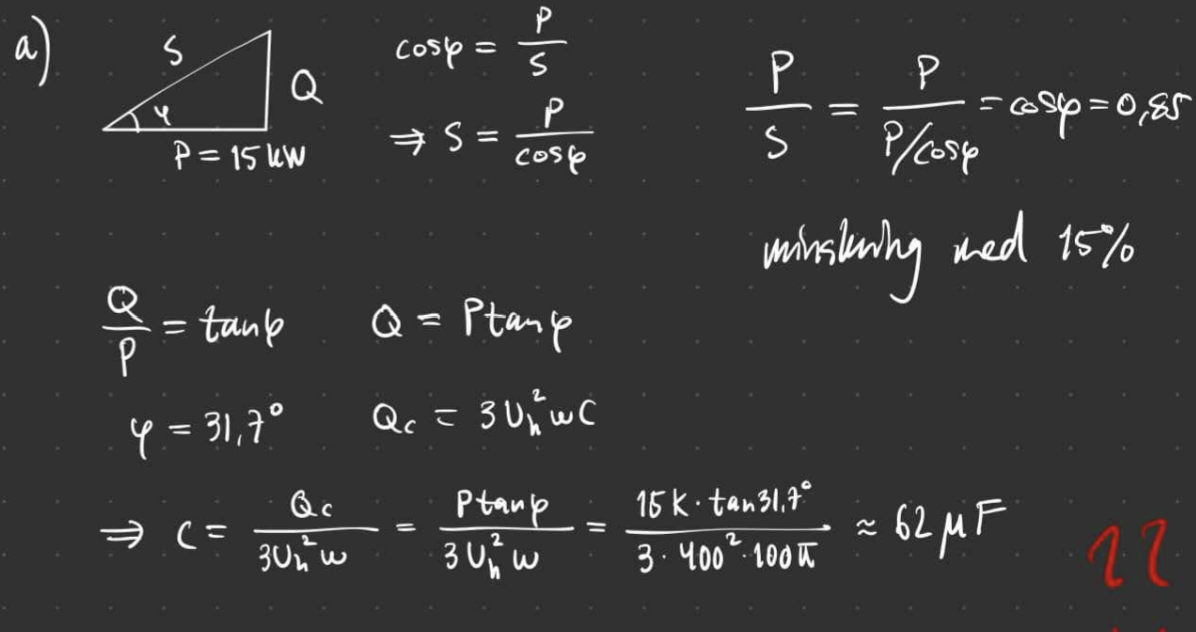 a)
S
Q
φ
P = 15 kW
cosφ = P/S
⇒ S = P/cosφ
P/S = P/(P/cosφ) = cosφ = 0,85
minskning med 15%
Q/P = tanφ
Q = Ptanφ
φ = 31,7°
Qc = 3Uh²ωC
⇒ C = Qc/(3Uh²ω) = Ptanφ/(3Uh²ω) = 15K·tan31,7°/(3·400²·100π) ≈ 62 μF